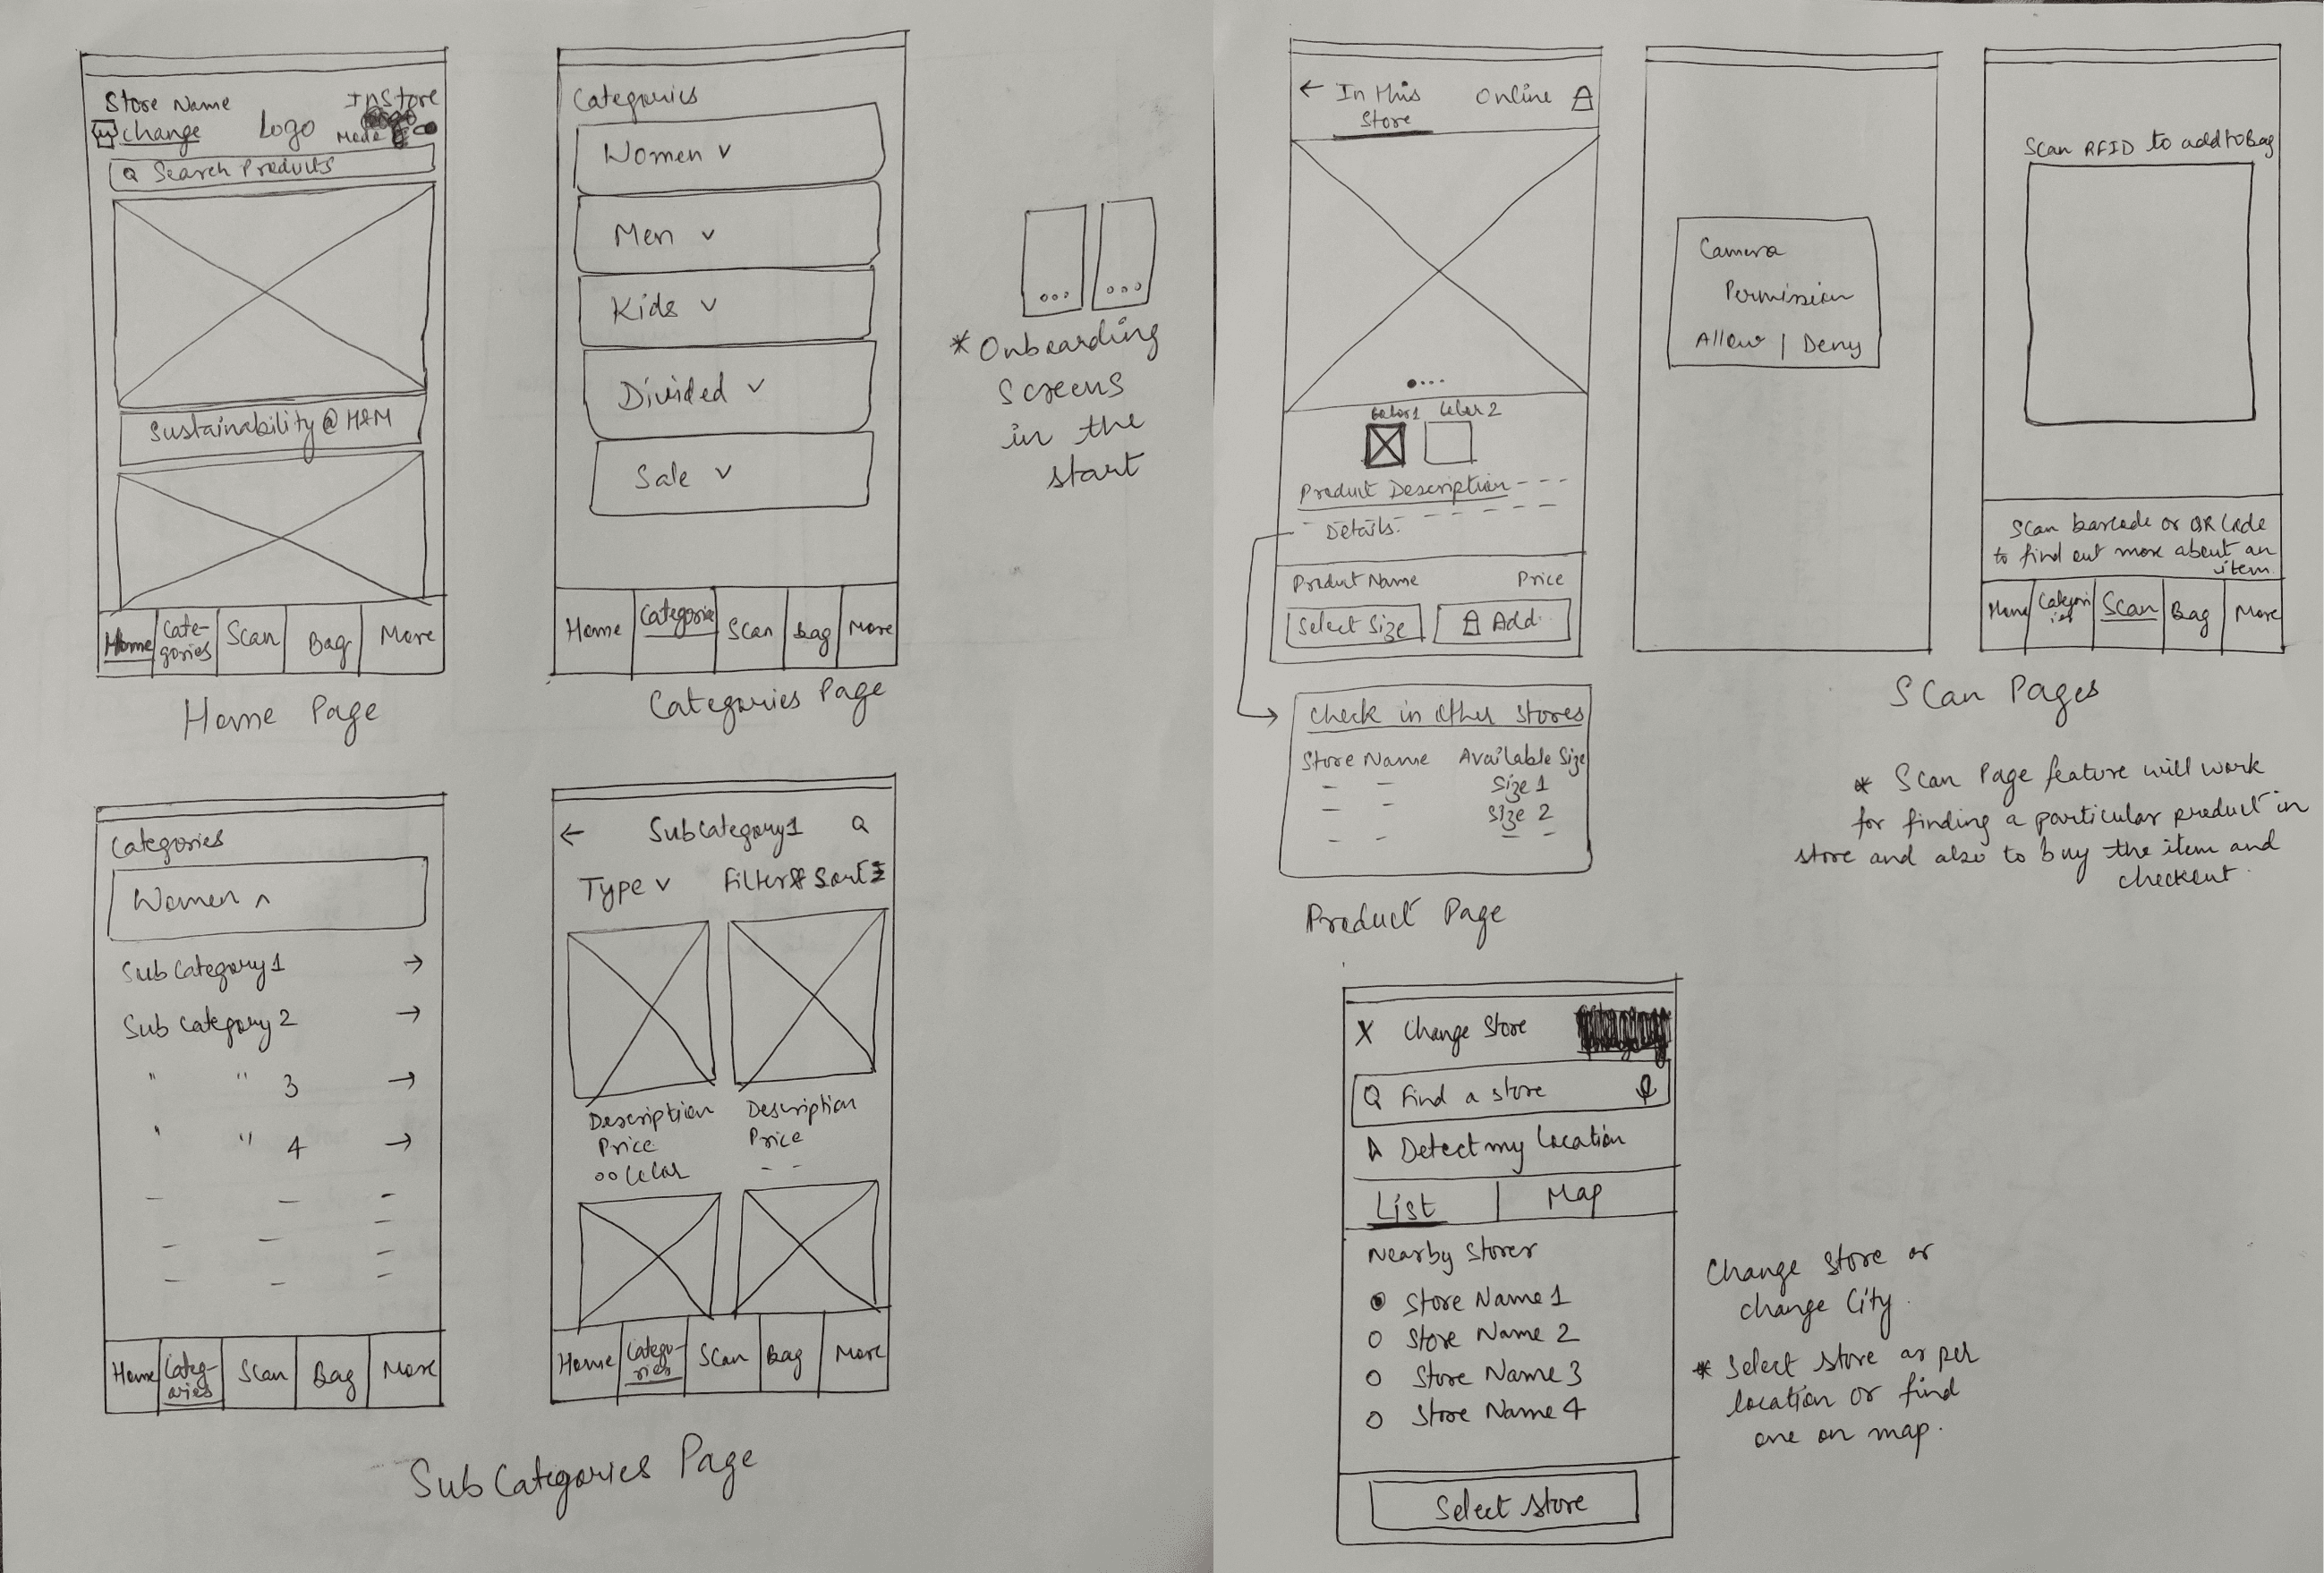 Store Name
change
Logo
InStore
Mode
Search Products
Sustainability @ H&M
Home
Cate-
gories
Scan
Bag
More
Home Page
Categories
Women
Men
Kids
Divided
Sale
Home
Categories
Scan
Bag
More
Categories Page
* Onboarding
screens
in the
start
Categories
Women
Sub Category 1
Sub Category 2
" " 3
" " 4
Home
Categ-
ories
Scan
Bag
More
SubCategory1
Type
Filter
Sort
Description
Price
Color
Description
Price
Home
Catego-
ries
Scan
Bag
More
Sub Categories Page
In this
Store
Online
Color1
Color 2
Product Description
Details.
Product Name
Price
Select Size
Add
Check in other stores
Store Name
Available Size
Size 1
Size 2
Product Page
Camera
Permission
Allow | Deny
Scan RFID to add to bag
Scan barcode or QR Code
to find out more about an
item.
Home
Categori
es
Scan
Bag
More
Scan Pages
* Scan Page feature will work
for finding a particular product in
store and also to buy the item and
checkout.
X Change Store
Find a store
Detect my location
List
Map
Nearby Stores
Store Name 1
Store Name 2
Store Name 3
Store Name 4
Select Store
Change store or
change City.
* Select store as per
location or find
one on map.